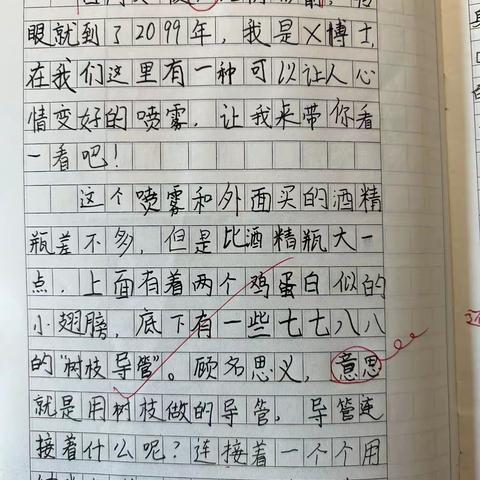 眼就到了2099年，我是X博士，
在我们这里有一种可以让人心
情变好的喷雾。让我来带你看
一看吧！
这个喷雾和外面买的酒精
瓶差不多，但是比酒精瓶大一
点，上面有着两个鸡蛋白似的
小翅膀，底下有一些七七八八
的“树枝导管”。顾名思义，意思
就是用树枝做的导管，导管连
接着什么呢？连接着一个个用